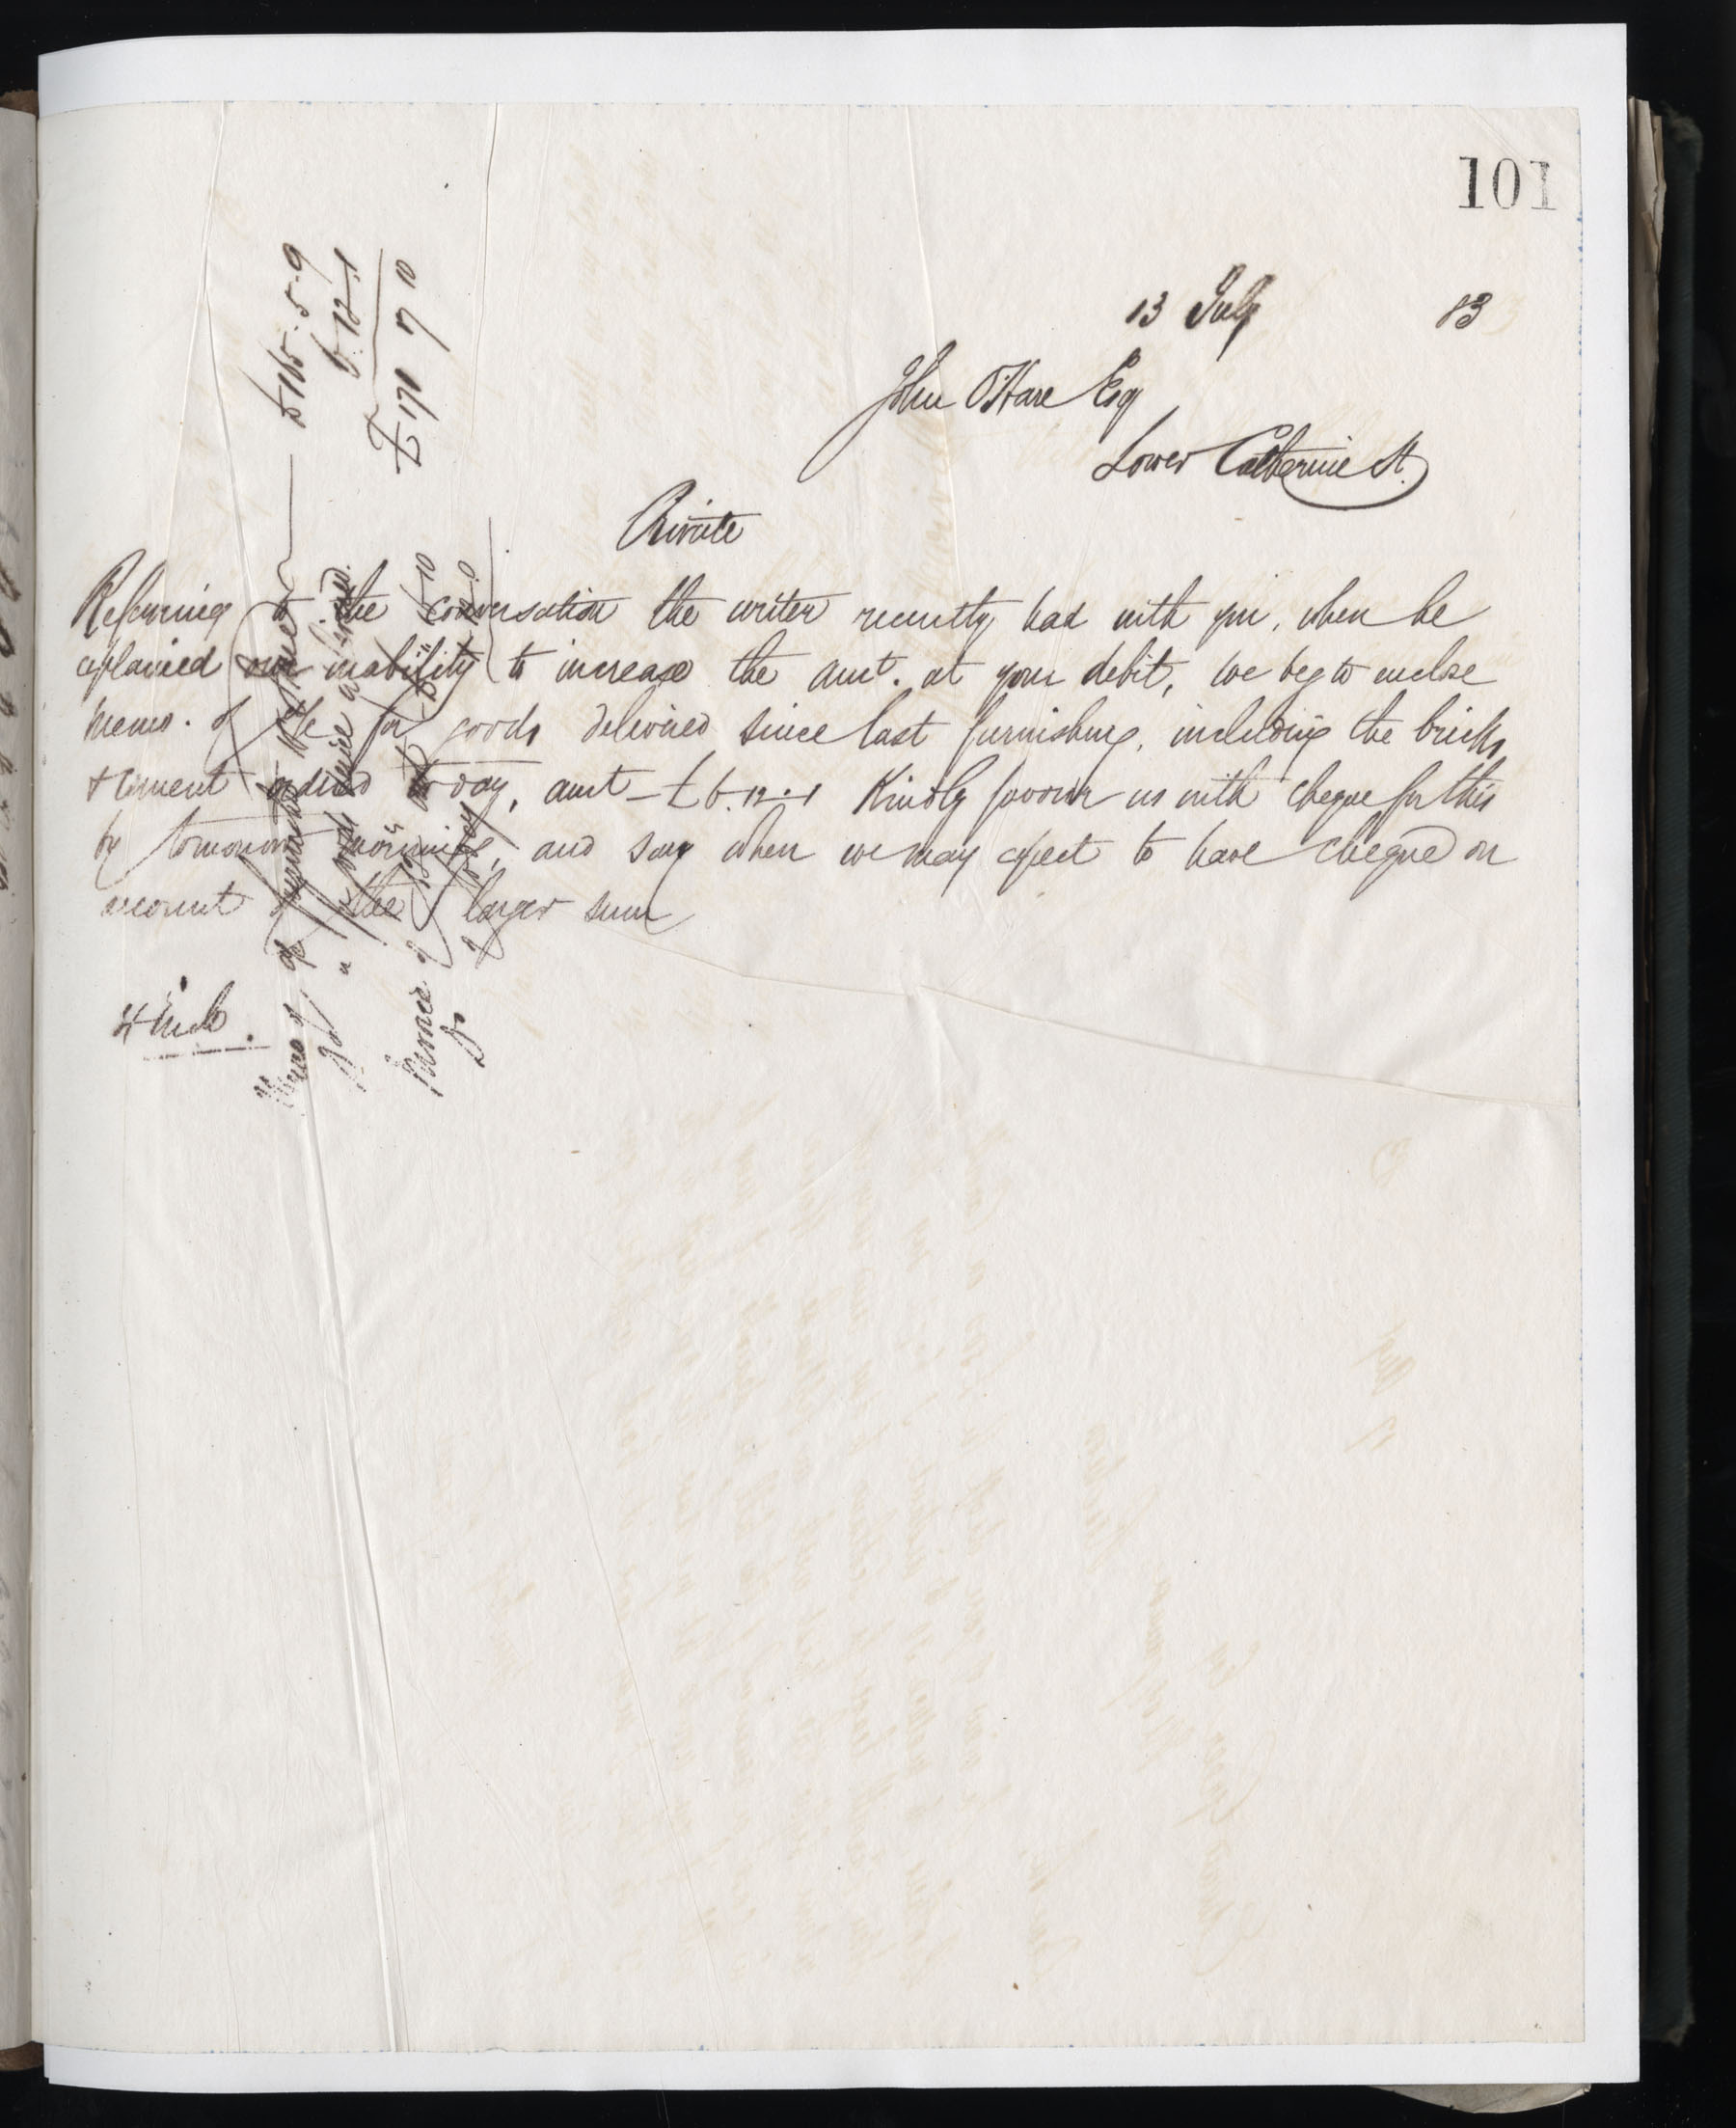 101
13 July 83
John O'Hare Esq
Lower Catherine St.
Private
Referring to the conversation the writer recently had with you, when he
explained our inability to increase the amt. at your debit, we beg to enclose
memo. of a/c for goods delivered since last furnishing, including the bricks
& cement ordered today, amt - £6.12.1 Kindly favour us with cheque for this
by tomorrow morning, and say when we may expect to have cheque on
account of the larger sum
4 Incls.
Memo of a/c furnished £165.5.9
Do " goods since 6.12.1
£171 7 10
Invoice of 13
Do of